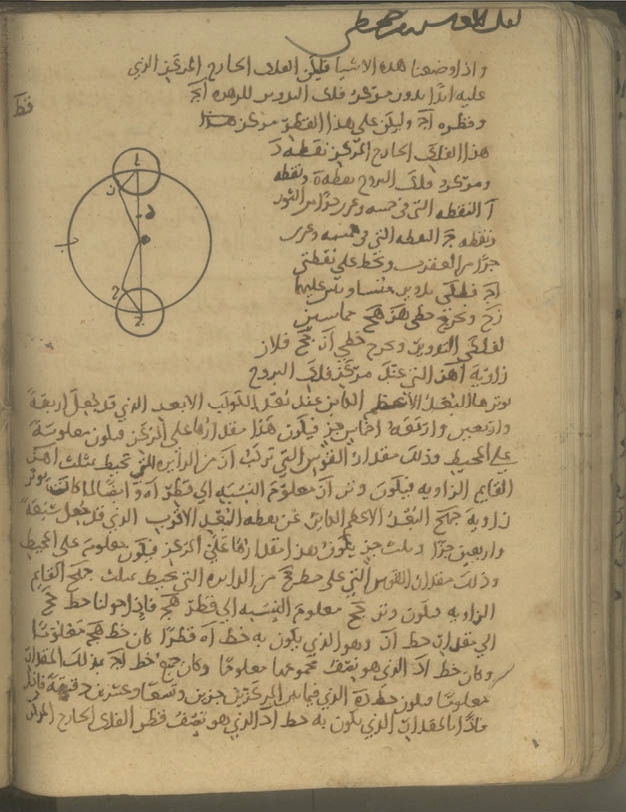 واذا وضعنا هذه الاشيا فليكن الفلك الخارج المركز الذي
عليه ابدا يدور مركز فلك التدوير للزهره اج
وقطره اج وليكن على هذا القطر مركز
هذا الفلك الخارج المركز نقطه د
ومركز فلك البروج نقطة ه ونقطه
ا النقطه التى فى خمسه وعرىں جزا من الثور
ونقطه ج النقطه التى فى خمسه وعرىں
جزا من العقرب ونخط على نقطتى
اج فلكى تدوير متساويين عليهما
زح ونخرج خطى هز هح مماسين
لفلكى التدوير ونخرج خطي از جح فلان
زاوية اهز التى عند مركز فلك البروج
يوتر ها البعد الاعظم الكاين عند بعد الكوكب الابعد الذي قد يجعل اربعة
واربعين واربعة اخماس جز فيكون هذا مقدارها على المركز فيكون معلومة
على المحيط وذلك مقدار القوس التي ترتب از من الدايره التي تحيط بمثلث اهز
القايم الزاويه فيكون وتر از معلوم النسبه الى قطر اه وايضا لما كانت يوتر
زاوية جهح البعد الاعظم الكاين عن نقطه البعد الاقرب الذي قد جعل سبعة
واربعين جزا وثلث جز يكون هذا مقدارها على المركز فيكون معلومه على المحيط
وذلك مقدار القوس التي على خط جح من الدايره التي تحيط بمثلث جهح القايم
الزاويه فيكون وتر جح معلوم النسبه الى قطر هج فاذا حولنا خط جح
الى مقدار خط از وهو الذي يكون به خط اه قطرا كان خط هج معلوما
وكان خط اد الذي هو نصف مجموعهما معلوما وكان جميع خط اج بذلك المقدار
معلوما فيكون خط ده الذي فيما بين المركزين جزين وتسعا وعشرين دقيقة
فاذا بالمقدار الذي يكون به خط اد الذي هو نصف قطر الفلك الخارج المركز
ا
ز
د
ه
ب
ح
ج